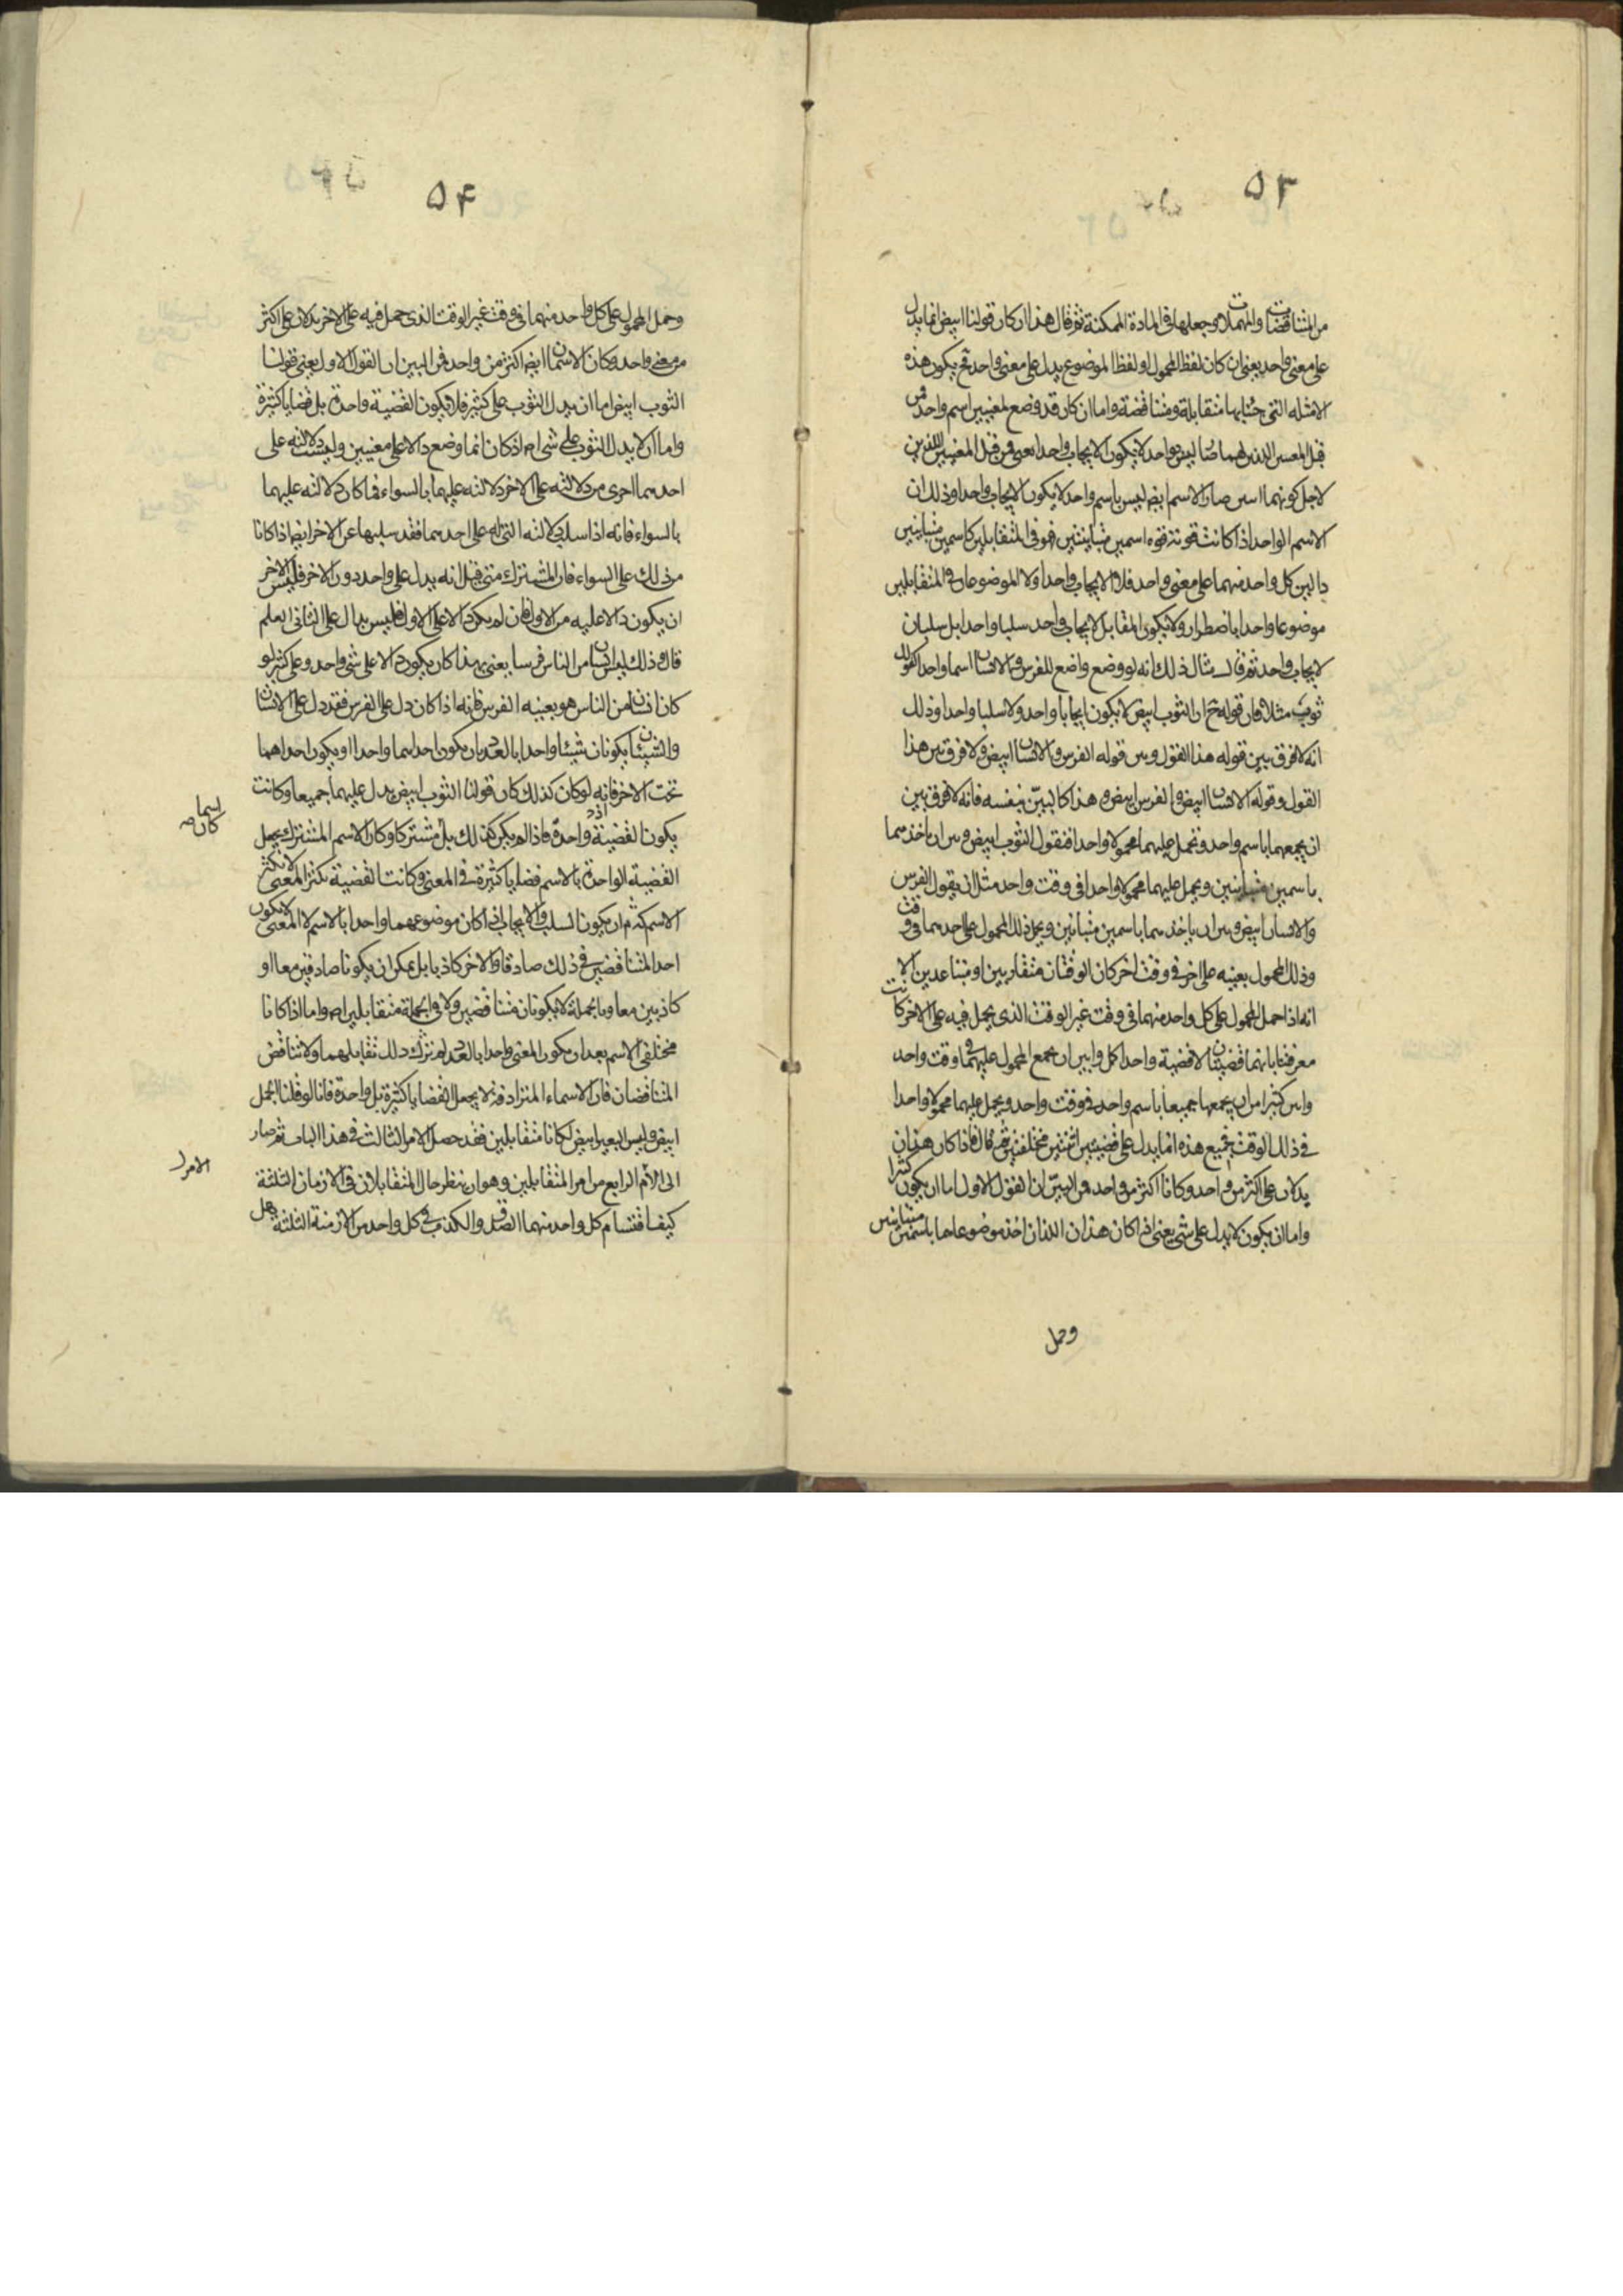 ٥٣
من المتناقضات والمهملات وجعلها فى المادة الممكنة ثم قال هذا ان كان قولنا ابيض انما يدل
على معنى واحد يعنى ان كان لفظ المحمول او لفظ الموضوع يدل على معنى واحد فح يكون هذه
الامثله التى جئنا بها متقابلة ومتناقضة واما ان كان قد وضع لمعنيين اسم واحد من
قبل المعنيين اللذين لهما صار ليس بواحد لا يكون الايجاب واحدا يعنى من قبل المعنيين اللذين
لاجل كونهما اثنين صار الاسم ايضا ليس باسم واحد لا يكون الايجاب واحدا وذلك ان
الاسم الواحد اذا كانت قوته قوة اسمين متباينين فهو فى المتقابلين كاسمين متباينين
دالين كل واحد منهما على معنى واحد فلا الايجاب واحدا ولا الموضوعان فى المتقابلين
موضوعا واحدا باضطرار ولا يكون المقابل لايجاب واحد سلبا واحدا بل سلبان
لايجاب واحد ثم قال مثال ذلك انه لو وضع واضع للفرس والانسان اسما واحدا كقولك
ثوب مثلا فان قوله ح ان الثوب ابيض لا يكون ايجابا واحدا ولا سلبا واحدا وذلك
انه لا فرق بين قوله هذا القول وبين قوله الفرس والانسان ابيض ولا فرق بين هذا
القول وقوله الانسان ابيض والفرس ابيض وهذا كالبيّن بنفسه فانه لا فرق بين
ان يجمعهما باسم واحد ونحمل عليهما محمولا واحدا فنقول الثوب ابيض وبين ان ناخذهما
باسمين متباينين ويحمل عليهما محمولا واحدا فى وقت واحد مثل ان يقول الفرس
والانسان ابيض وبين ان ياخذهما باسمين متباينين ويحمل ذلك المحمول على احدهما فى وقت
وذلك المحمول بعينه على اخر فى وقت اخر كان الوقتان متقاربين او متباعدين الا
انه اذا حمل المحمول على كل واحد منهما فى وقت غير الوقت الذى يحمل فيه على الاخر كانت
معرفتنا بانهما قضيتان لا قضية واحدا كل وابين ان يجمع المحمول عليهما فى وقت واحد
وابين كثيرا من ان يجمعها جميعا باسم واحد فى وقت واحد ويحمل عليهما محمولا واحدا
فى ذلك الوقت فجميع هذه انما يدل على قضيتين اثنتين مختلفتين ثم قال فاذا كان هذان
يدلان على اكثر من واحد وكانا اكثر من واحد فمن البيّن ان القول الاول اما ان يكون كثيرا
واما ان يكون لا يدل على شى يعنى اذا كان هذان اللذان اخذ موضوعاهما باسمين متباينين
وحمل
٥٤
وحمل المحمول على كل واحد منهما فى وقت غير الوقت الذى حمل فيه على الاخر يدلان على اكثر
من معنى واحد وكان الاسمان ايضا اكثر من واحد فمن البين ان القول الاول يعنى قولنا
الثوب ابيض اما ان يدل الثوب على كثير فلا يكون القضية واحدة بل قضايا كثيرة
واما ان لا يدل الثوب على شى اصلا اذ كان انما وضع دالا على معنيين وليست دلالته على
احدهما احرى من دلالته على الاخر دلالته عليهما بالسواء فما كان دلالته عليهما
بالسواء فانه اذا سلب دلالته التى له على احدهما فقد سلبها عن الاخر ايضا اذا كانا
من ذلك على السواء فان المشترك متى قيل انه يدل على واحد دون الاخر فليس الاخر
ان يكون دالا عليه من الاول فان لم يكن دالا على الاول فليس بدال على الثانى العلم
قال وذلك ليس انسان من الناس فرسا يعنى بهذا كان يكون دالا على شى واحد وعلى كثير لو
كان انسان من الناس هو بعينه الفرس فانه اذا كان دل على الفرس فقد دل على الانسان
والشيئان يكونان شيئا واحدا بالعدد بان يكون احدهما واحدا او يكون احداهما
تحت الاخر فانه لو كان كذلك كان قولنا الثوب ابيض يدل عليهما جميعا وكانت
يكون القضية اذن واحدة فاذا لم يكن كذلك بل مشتركا وكان الاسم المشترك يجعل
القضية الواحدة بالاسم قضايا كثيرة فى المعنى وكانت القضية تكثر المعنى لا تكثر
الاسم لم ان يكون السلب والايجاب اذا كان موضوعهما واحدا بالاسم لا المعنى لا يكون
احد المتناقضين فى ذلك صادقا والاخر كاذبا بل يمكن ان يكونا صادقين معا او
كاذبين معا وبالجملة لا يكونان متناقضين ولا فى الجملة متقابلين اصلا واما اذا كانا
مختلفى الاسم بعد ان يكون المعنى واحدا بالعدد لم يترك ذلك تقابلهما ولا تناقض
المتناقضان فان الاسماء المترادفة لا يجعل القضايا كثيرة بل واحدة فانا لو قلنا الجمل
ابيض وليس البعير ابيض لكانا متقابلين فقد حصل الامر الثالث فى هذا الباب ثم صار
الى الام الرابع من امر المتقابلين وهو ان ينظر حال المتقابلان فى الازمان الثلثة
كيف اقتسام كل واحد منهما الصدق والكذب فى كل واحد من الازمنة الثلثة هل
اسما
كان صه
الامر